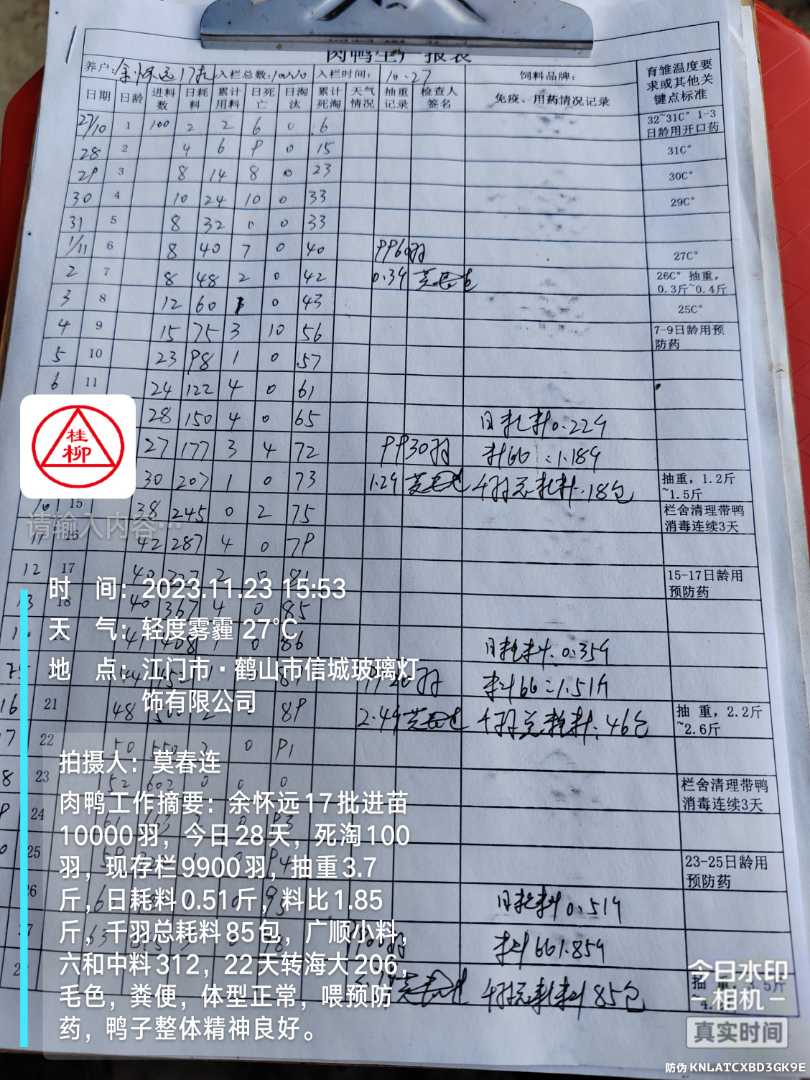 肉鸭生产报表
养户: 余怀远17批 入栏总数: 10000 入栏时间: 10.27 饲料品牌: 育雏温度要求或其他关键点标准
日期 日龄 进料数 日耗料 累计用料 日死亡 日淘汰 累计死淘 天气情况 抽重记录 检查人签名 免疫、用药情况记录
27/10 1 100 2 2 6 0 6 32~31C° 1-3日龄用开口药
28 2 4 6 9 0 15 31C°
29 3 8 14 8 0 23 30C°
30 4 10 24 10 0 33 29C°
31 5 8 32 0 0 33
1/11 6 8 40 7 0 40 9960羽 27C°
2 7 8 48 2 0 42 0.39 莫春连 26C° 抽重，0.3斤~0.4斤
3 8 12 60 1 0 43 25C°
4 9 15 75 3 10 56 7-9日龄用预防药
5 10 23 98 1 0 57
6 11 24 122 4 0 61
28 150 4 0 65 日耗料0.229
27 177 3 4 72 9930羽 料比:1.189
30 207 1 0 73 1.29 莫春连 千羽总耗料:18包 抽重，1.2斤~1.5斤
15 38 245 0 2 75 栏舍清理带鸭消毒连续3天
42 287 4 0 79
12 17 15-17日龄用预防药
40 367 4 0 85
86 日耗料:0.359
羽 料比:1.519
16 21 48 89 2.49 莫春连 千羽总耗料:46包 抽 重，2.2斤~2.6斤
22 50 550 2 0 91
23 栏舍清理带鸭消毒连续3天
24
25 23-25日龄用预防药
26 日耗料0.519
羽 料比1.859
莫春连 千羽总耗料85包 抽 重，
桂柳
请输入内容…
时 间: 2023.11.23 15:53
天 气: 轻度雾霾 27°C
地 点: 江门市·鹤山市信城玻璃灯
饰有限公司
拍摄人: 莫春连
肉鸭工作摘要: 余怀远17批进苗
10000羽，今日28天，死淘100
羽，现存栏9900羽，抽重3.7
斤，日耗料0.51斤，料比1.85
斤，千羽总耗料85包，广顺小料，
六和中料312，22天转海大206，
毛色，粪便，体型正常，喂预防
药，鸭子整体精神良好。
今日水印
-相机-
真实时间
防伪 KNLATCXBD3GK9E